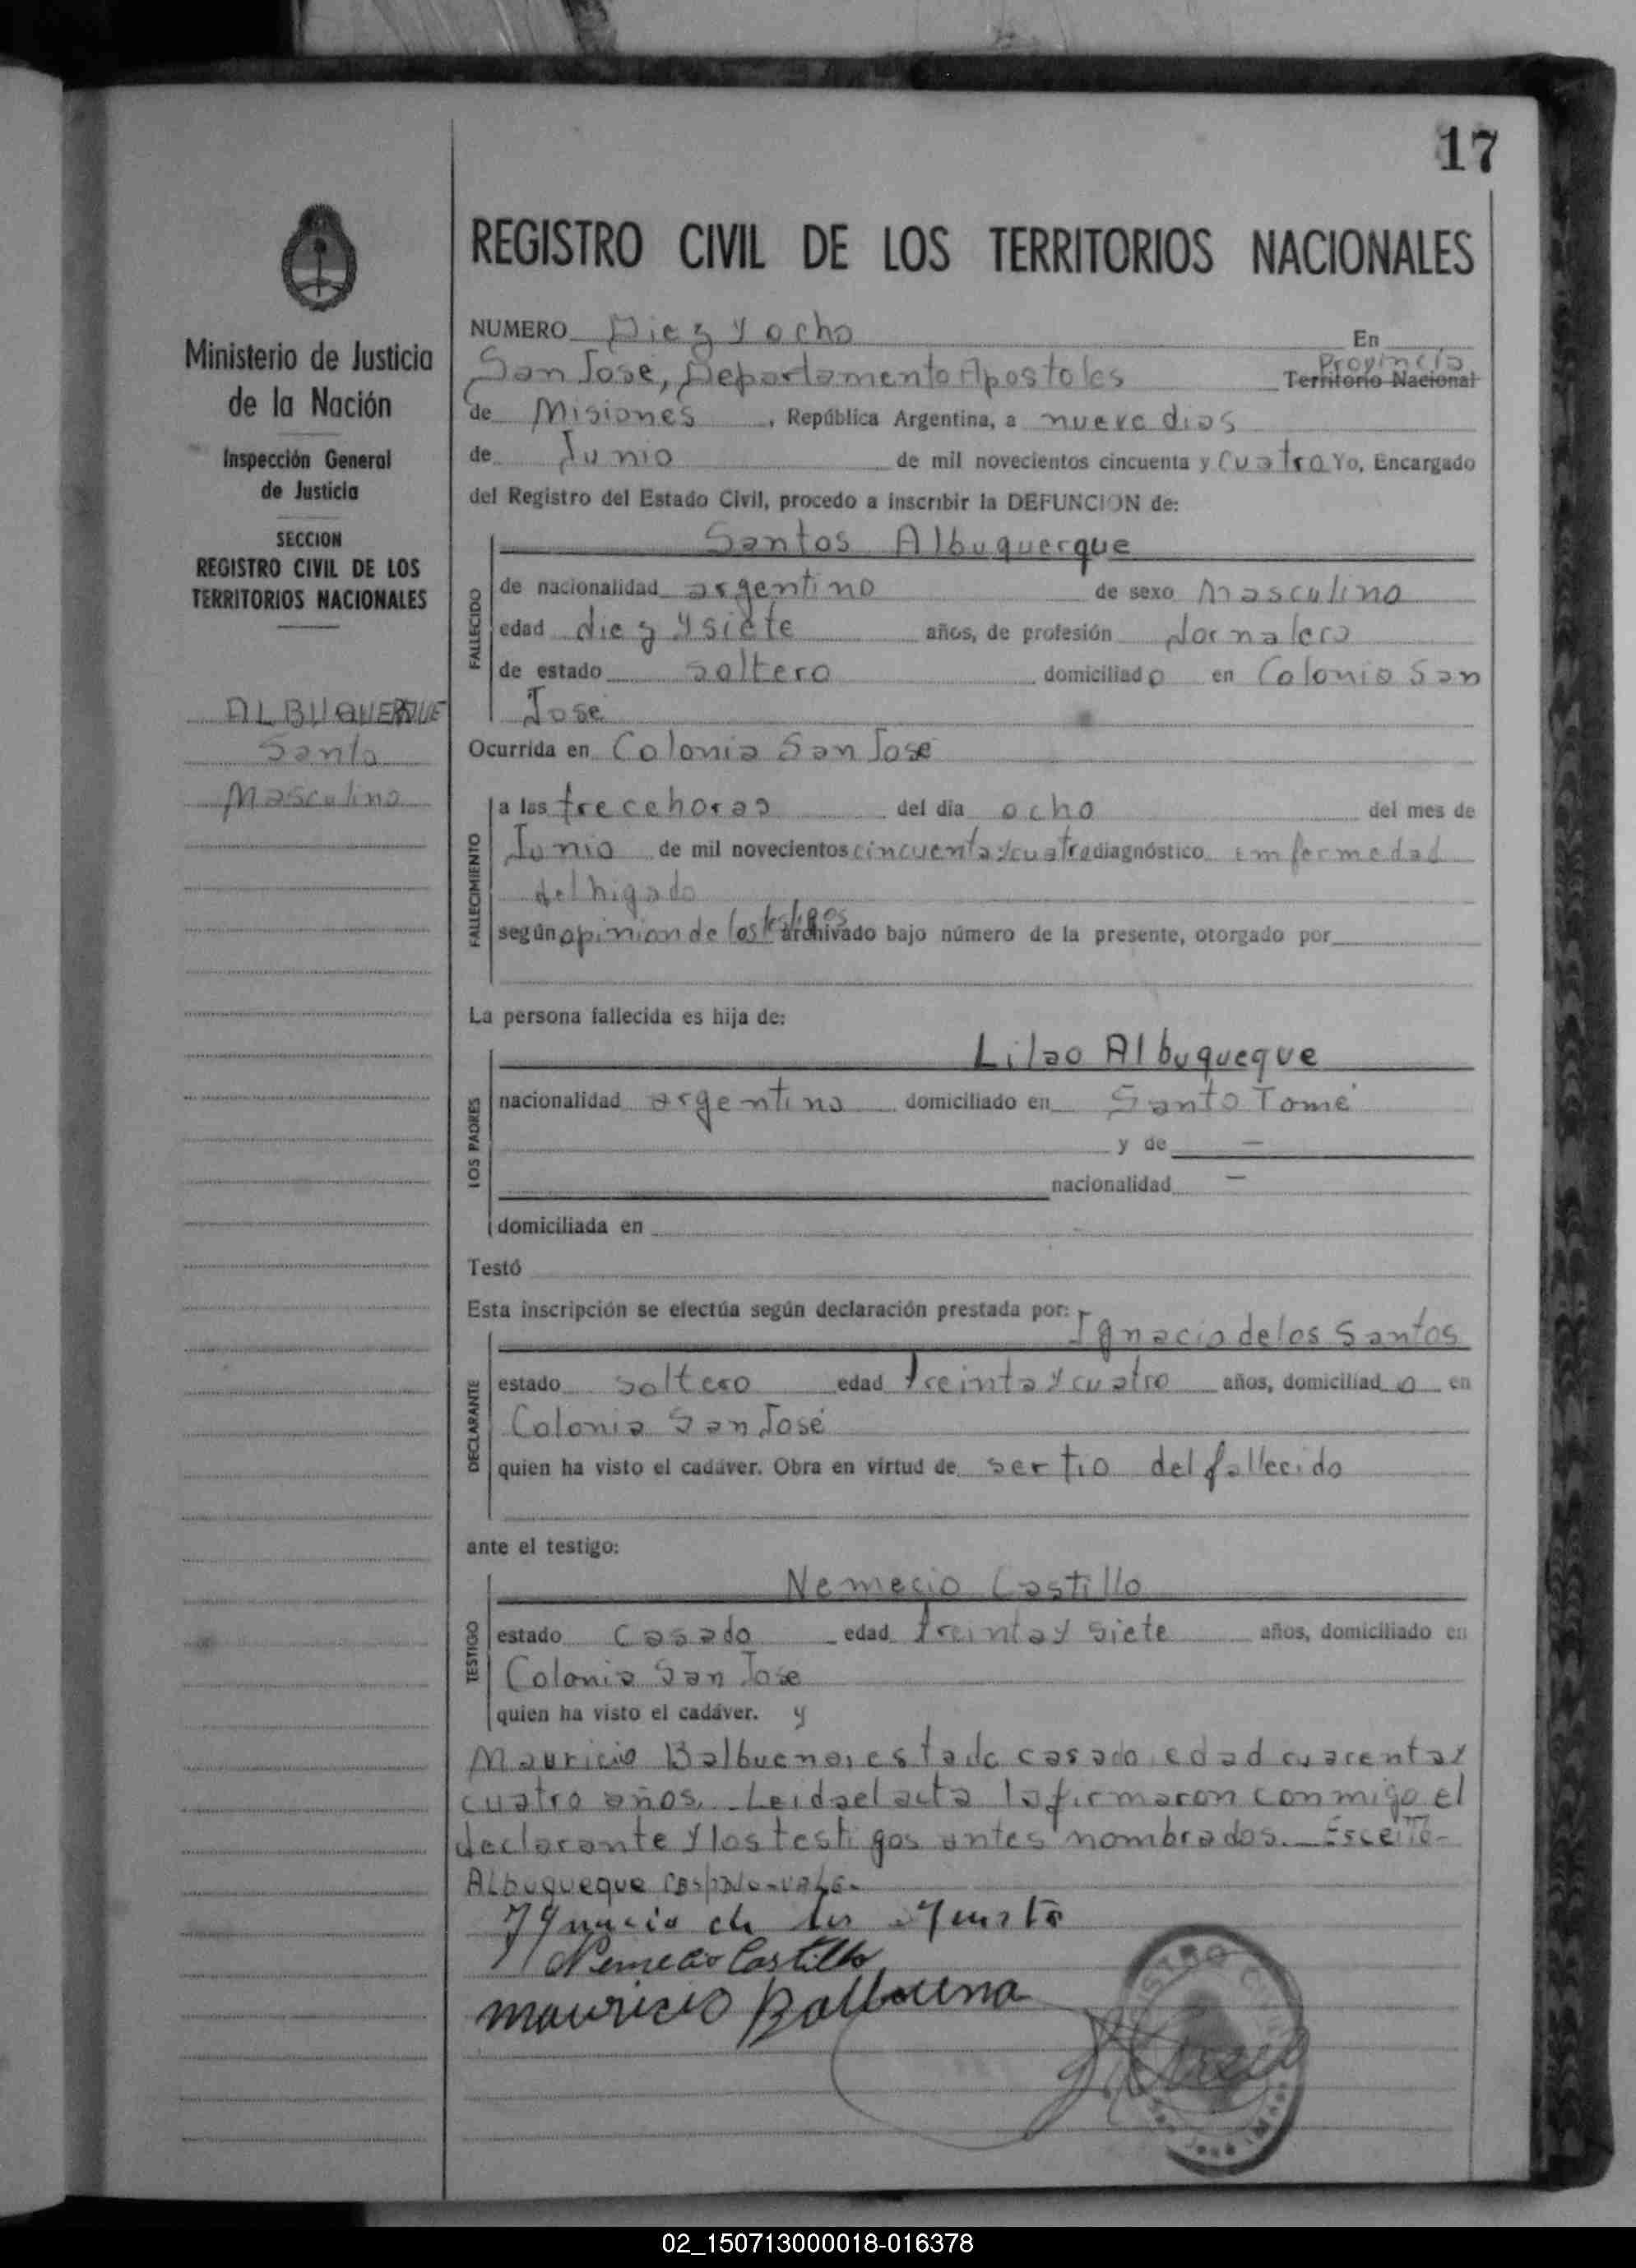 17
REGISTRO CIVIL DE LOS TERRITORIOS NACIONALES
Ministerio de Justicia
de la Nación
Inspección General
de Justicia
SECCION
REGISTRO CIVIL DE LOS
TERRITORIOS NACIONALES
ALBUQUERQUE
Santo
Masculino
NUMERO Diez y ocho En
San Jose, Departamento Apostoles Provincia Territorio Nacional
de Misiones, República Argentina, a nueve dias
de Junio de mil novecientos cincuenta y cuatro Yo, Encargado
del Registro del Estado Civil, procedo a inscribir la DEFUNCION de:
Santos Albuquerque
FALLECIDO
de nacionalidad argentino de sexo Masculino
edad diez y siete años, de profesión Jornalero
de estado soltero domiciliado en Colonia San
Jose
Ocurrida en Colonia San Jose
FALLECIMIENTO
a las trece horas del dia ocho del mes de
Junio de mil novecientos cincuenta y cuatro diagnóstico emfermedad
del higado
según opinion de los testigos archivado bajo número de la presente, otorgado por
La persona fallecida es hija de:
Lilao Albuqueque
LOS PADRES
nacionalidad argentino domiciliado en Santo Tomé
y de —
nacionalidad —
domiciliada en
Testó
Esta inscripción se efectúa según declaración prestada por:
Ignacio de los Santos
DECLARANTE
estado soltero edad treinta y cuatro años, domiciliado en
Colonia San José
quien ha visto el cadáver. Obra en virtud de ser tio del fallecido
ante el testigo:
Nemecio Castillo
TESTIGO
estado casado edad treinta y siete años, domiciliado en
Colonia San Jose
quien ha visto el cadáver. y
Mauricio Balbuena, estado casado edad cuarenta y
cuatro años. Leida el acta la firmaron conmigo el
declarante y los testigos antes nombrados.
Albuqueque
Ignacio de los
Nemecio Castillo
mauricio Balbuena
02_150713000018-016378